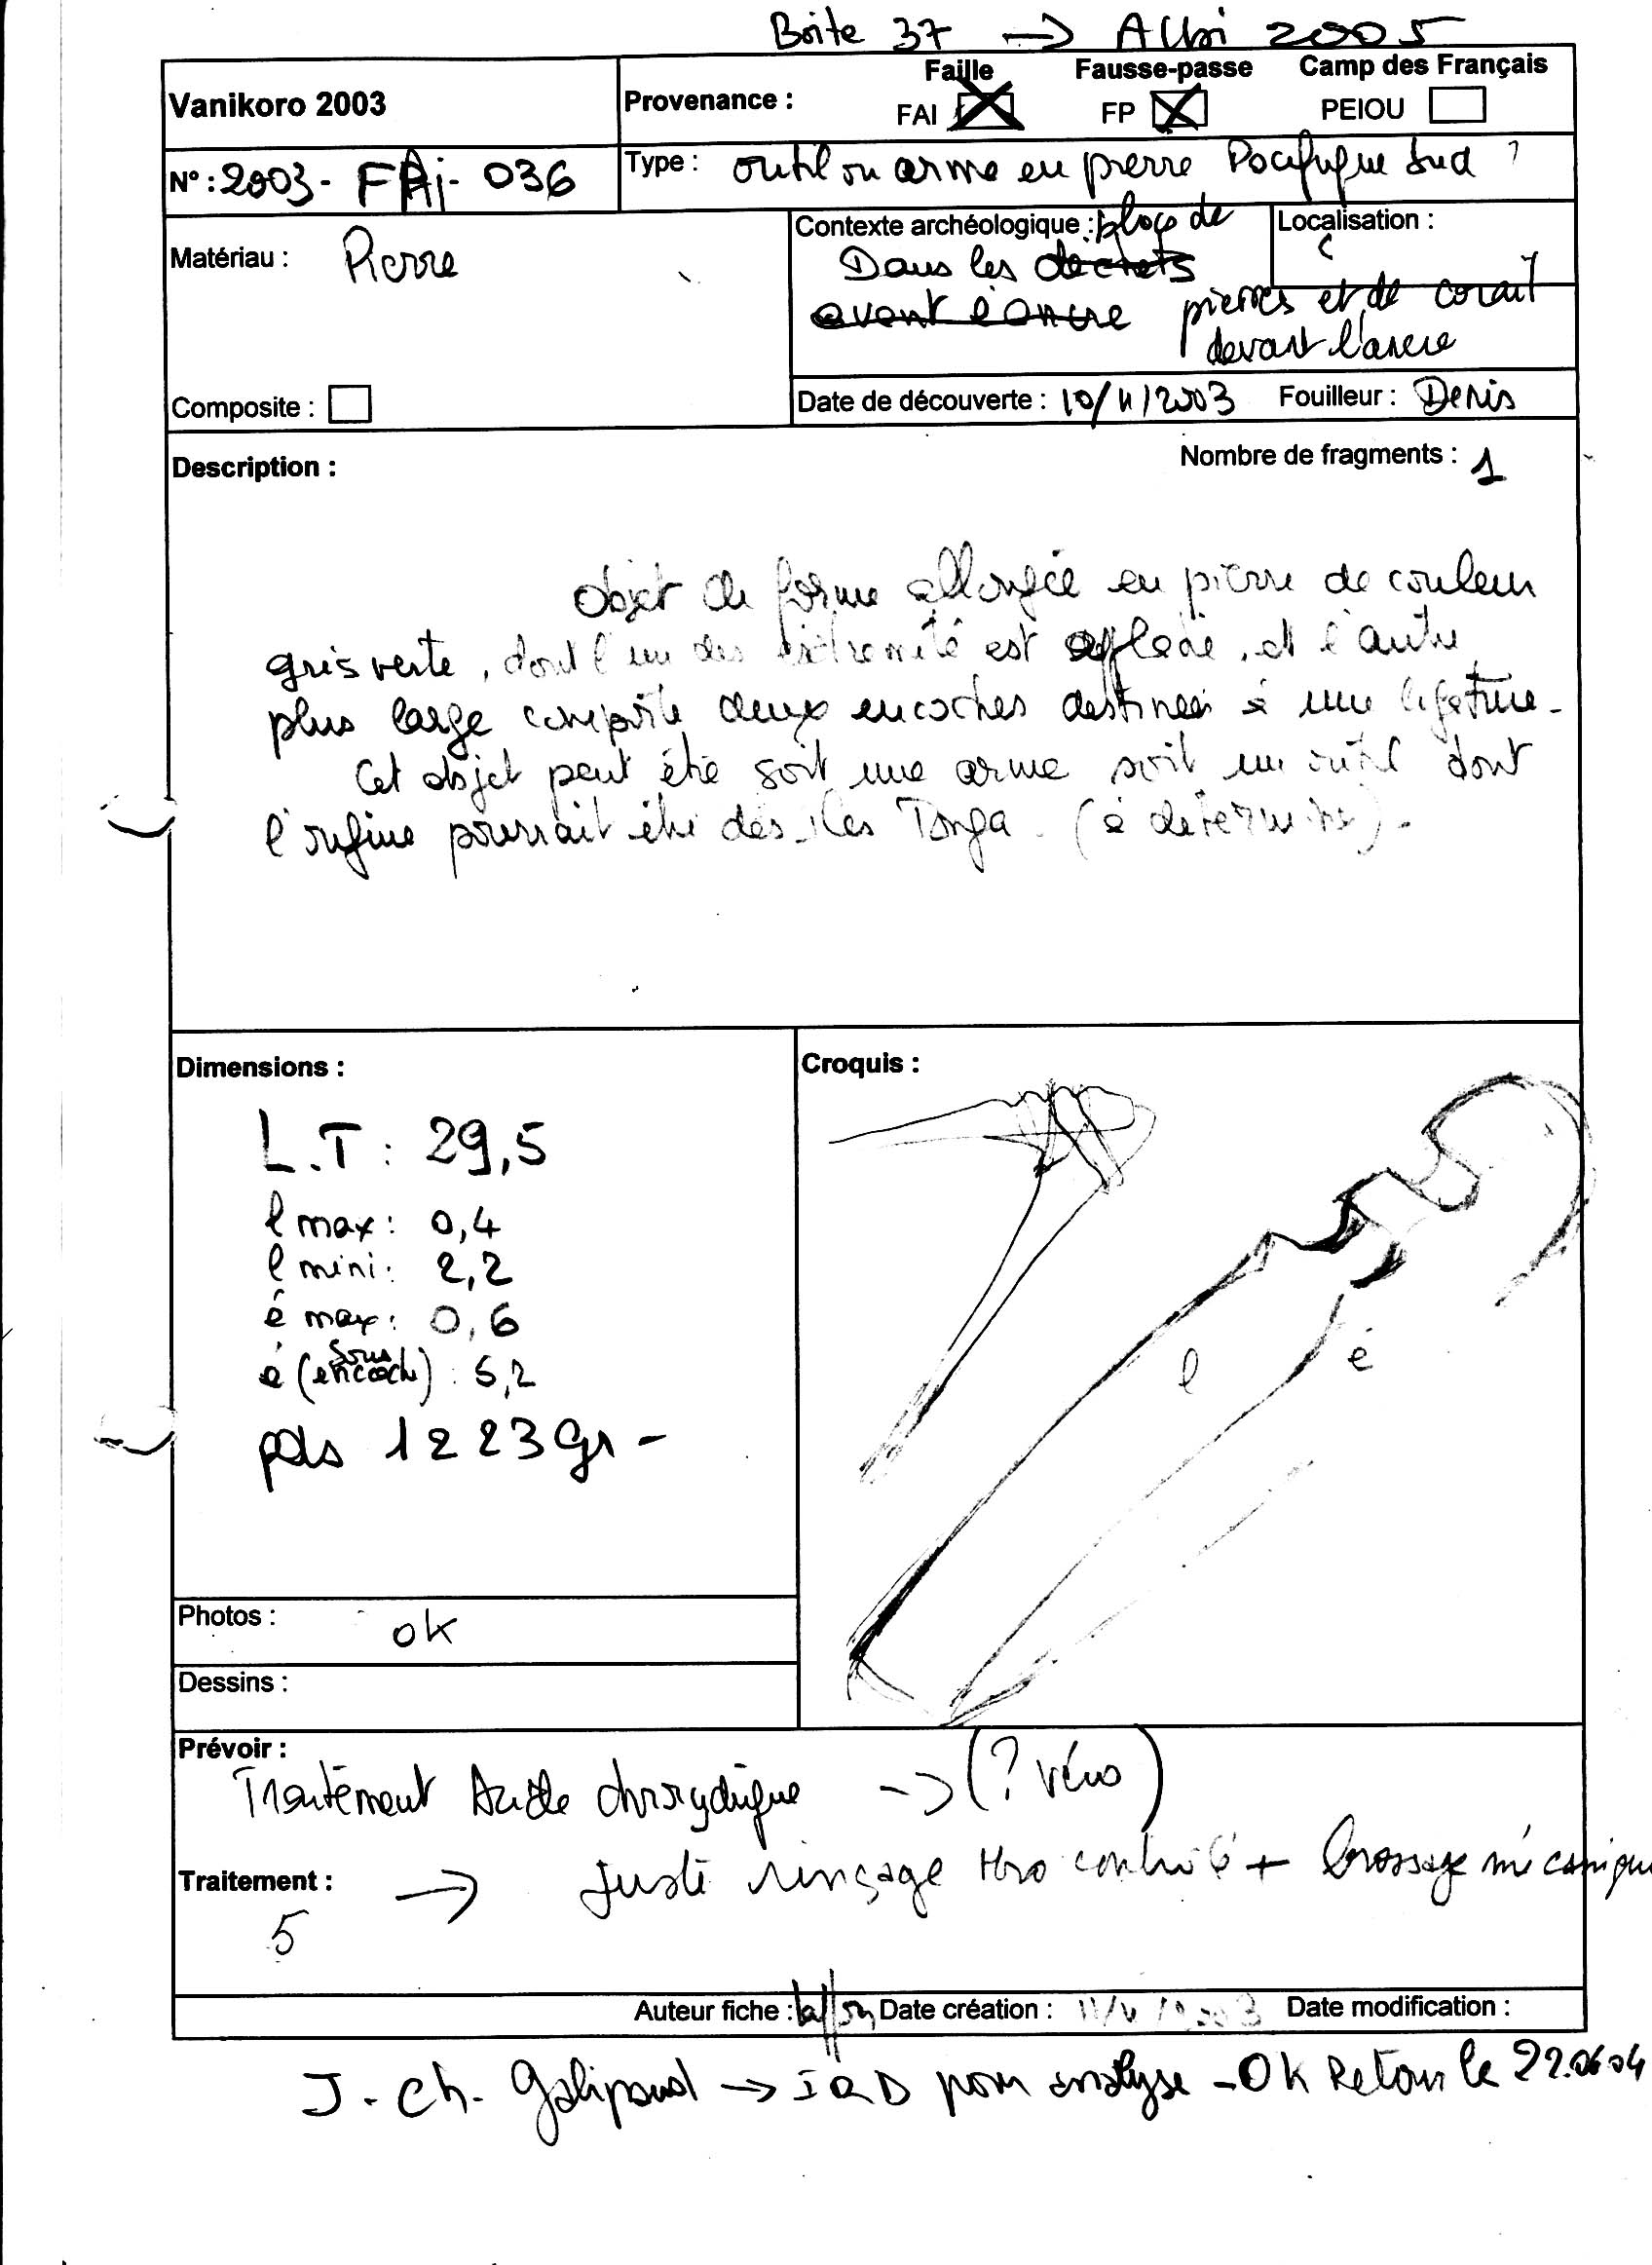 Boite 37 → Albi 2005
Vanikoro 2003
Provenance :
Faille
FAI
Fausse-passe
FP
Camp des Français
PEIOU
N° : 2003- FAi- 036
Type : outil ou arme en pierre Pacifique Sud ?
Matériau : Pierre
Composite :
Contexte archéologique : blocs de
Dans les dechets
avant l'ancre pierres et de corail
devant l'ancre
Localisation :
Date de découverte : 10/11/2003 Fouilleur : Denis
Description :
Nombre de fragments : 1
Objet de forme allongée en pierre de couleur
gris verte, dont l'un des extremité est , et l'autre
plus large comporte deux encoches destinées à une ligature.
Cet objet peut être soit une arme soit un outil dont
l'origine pourrait être des iles Tonga. (à determiner).
Dimensions :
L.T : 29,5
l max : 0,4
l mini : 2,2
é max : 0,6
é (sous encoche) : 5,2
pds 1223 gr -
Croquis :
l
é
Photos : ok
Dessins :
Prévoir :
Traitement Acide → (?
Traitement : → Juste rinçage contrôlé + brossage mécanique
5
Auteur fiche : Date création : 11/11/2003 Date modification :
J. Ch. Galipaud → IRD pour analyse - OK Retour le 22.06.04